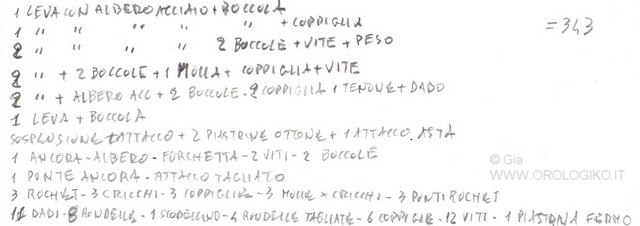 1 LEVA CON ALBERO ACCIAIO + BOCCOLA
1 " " " " " + COPPIGLIA = 343
2 " " " " 2 BOCCOLE + VITE + PESO
2 " + 2 BOCCOLE + 1 MOLLA + COPPIGLIA + VITE
2 " + ALBERO ACC + 2 BOCCOLE - 2 COPPIGLIA 1 TENONE + DADO
1 LEVA + BOCCOLA
SOSPENSIONE + ATTACCO + 2 PIASTRINE OTTONE + 1 ATTACCO ASTA
1 ANCORA - ALBERO - FORCHETTA - 2 VITI - 2 BOCCOLE
1 PONTE ANCORA - ATTACCO TAGLIATO
3 ROCHET - 3 CRICCHI - 3 COPPIGLIE - 3 MOLLE x CRICCHI - 3 PONTI ROCHET
11 DADI - 8 RONDELLE - 1 SCODELLINO - 4 RONDELLE TAGLIATE - 6 COPPIGLIE - 12 VITI - 1 PIASTRINA FERMO
© Gia
WWW.OROLOGIKO.IT